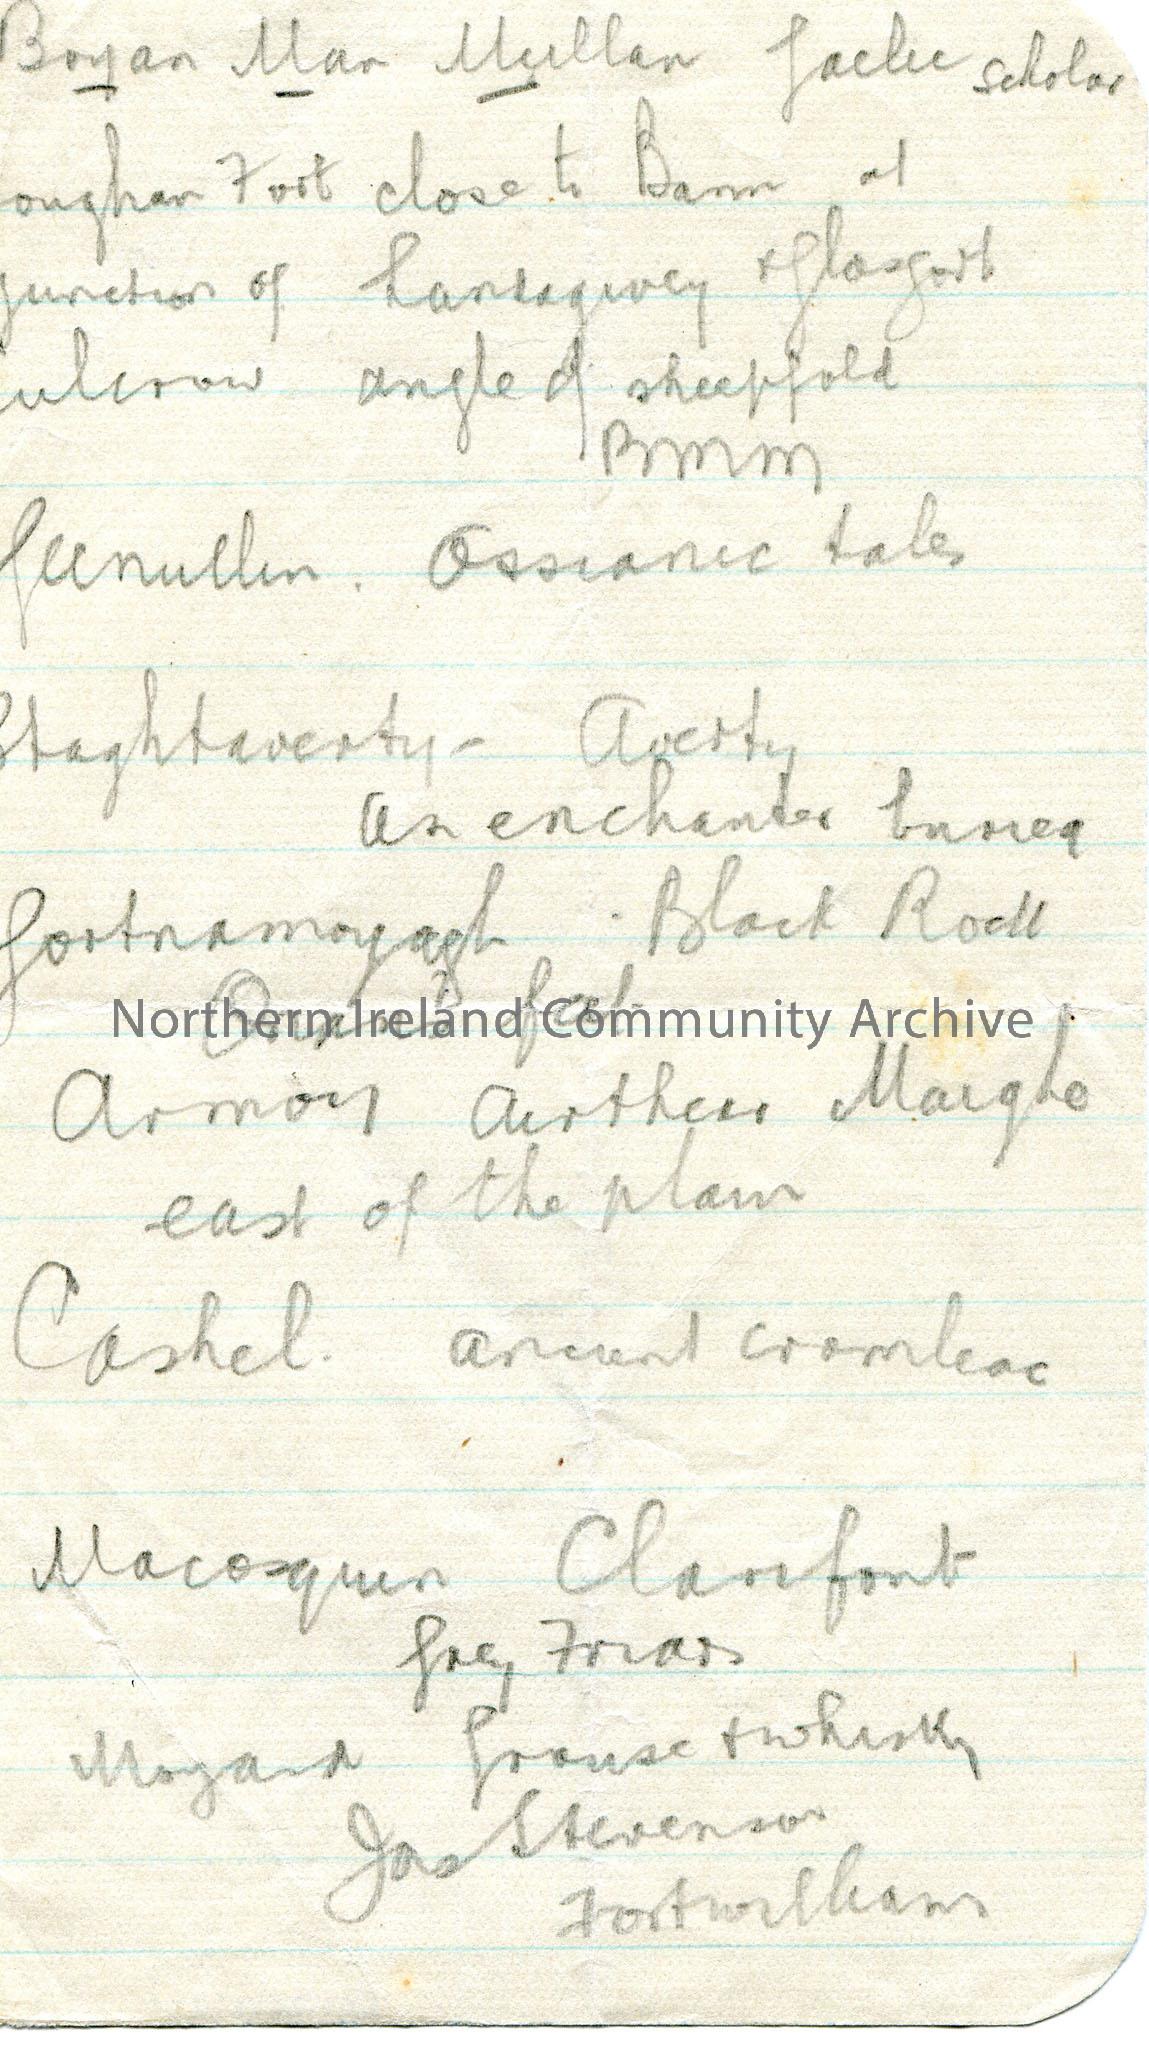 Bryan Mac Mullan Gaelic scholar
oughan Fort close to Bann at
junction of Landagivey & Glasgort
ulcrow angle of sheepfold
BMM
Geenullin. Ossianic tales
Staghtaverty - Averty
an enchanter buried
Gortnamoyagh. Black Rock
Ossian's feet
Northern Ireland Community Archive
Armoy Airthear Maighe
east of the plain
Cashel. ancient cromleac
Macosquin Clarifont
Grey Friars
Moyard Grouse & whisky
Jas Stevenson
Fortwilliam